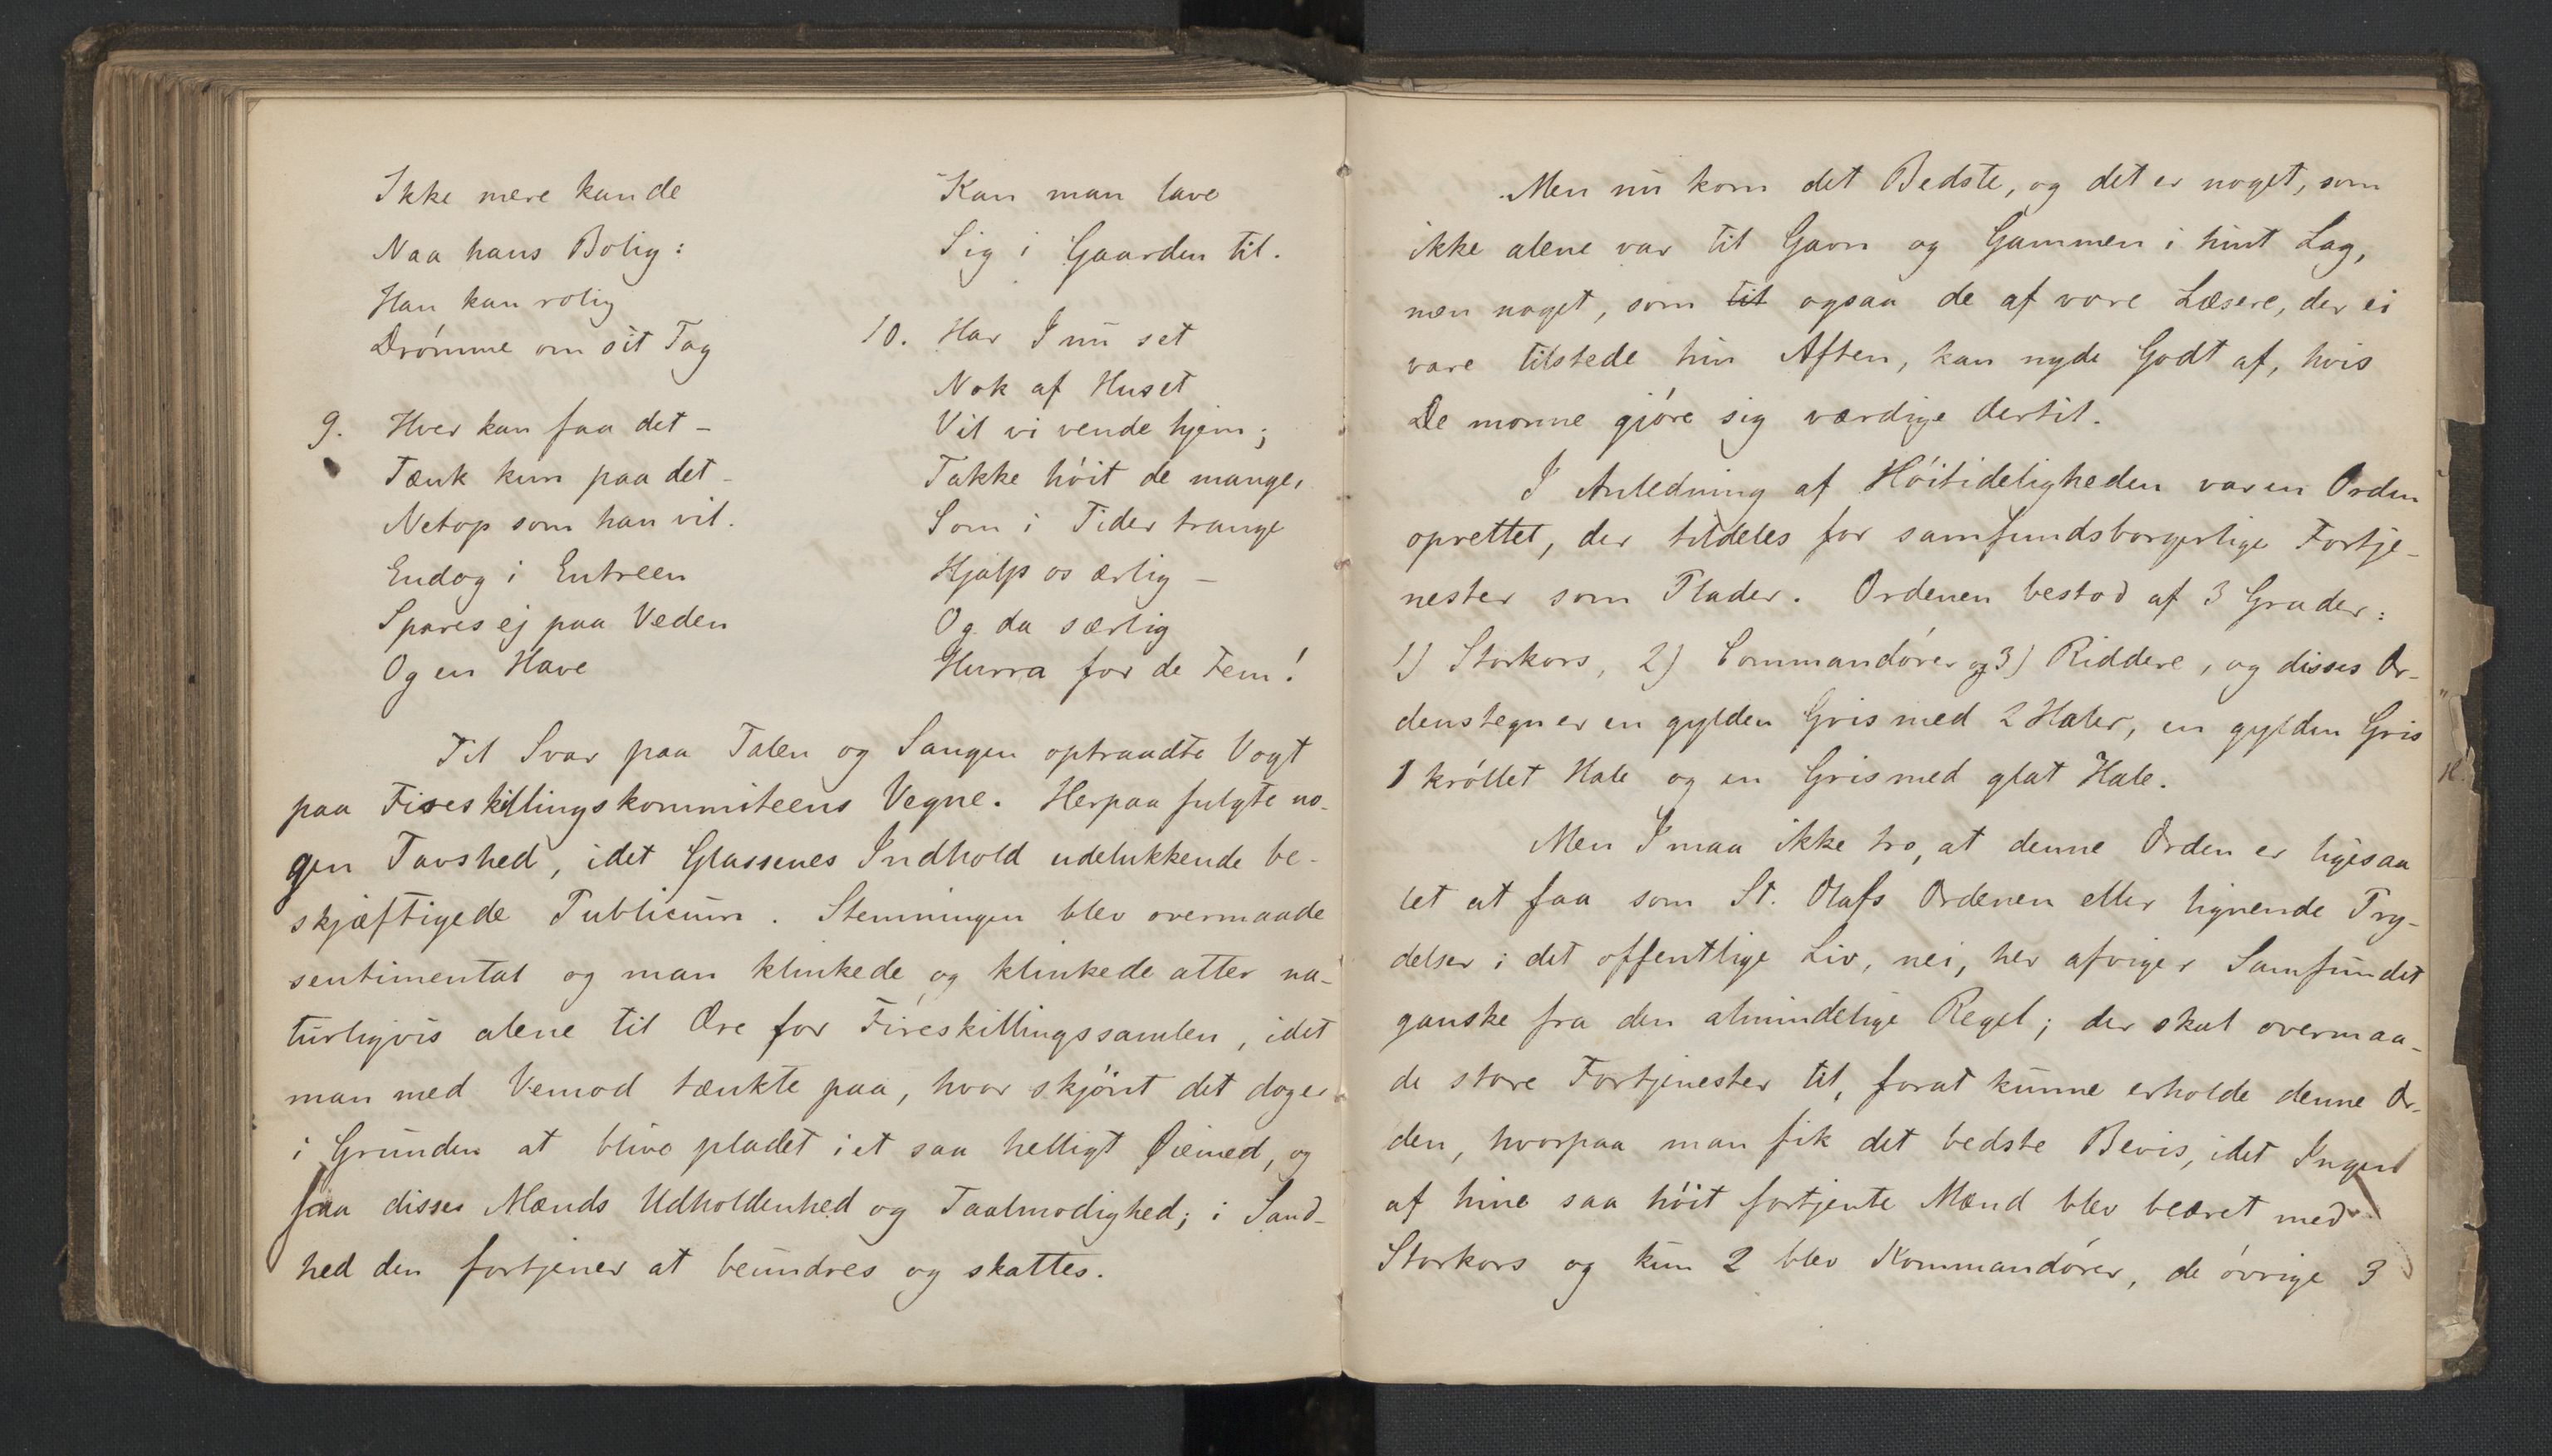 Ikke mere kan de
Naa hans Bolig:
Han kan rolig
Drömme om sit Tag
9. Hver kan faa det –
Tænk kun paa det –
Netop som han vil.
Endog i Entreen
Spares ej paa Veden
Og en Have
Kan man lave
Sig i Gaarden til.
10. Har I nu set
Nok af Huset
Vil vi vende hjem;
Takke höit de mange,
Som i Tider trange
Hjalp os ærlig –
Og da særlig
Hurra for de Fem!
Til Svar paa Talen og Sangen optraadte Vogt
paa Fireskillingskommiteens Vegne. Herpaa fulgte no-
gen Tavshed, idet Glassenes Indhold udelukkende be-
skjæftigede Publicum. Stemningen blev overmaade
sentimental og man klinkede og klinkede atter na-
turligvis alene til Ære for Fireskillingssamlen, idet
man med Vemod tænkte paa, hvor skjönt det dog er
i Grunden at blive pladet i et saa helligt Øiemed, og
paa disses Mænds Udholdenhed og Taalmodighed; i Sand-
hed den fortjener at beundres og skattes.
Men nu kom det Bedste, og det er noget, som
ikke alene var til Gavn og Gammen i hint Lag,
men noget, som til ogsaa de af vore Læsere, der ei
vare tilstede hin Aften, kan nyde Godt af, hvis
De monne gjöre sig værdige dertil.
I Anledning af Höitideligheden var en Orden
oprettet, der tildeles for samfundsborgerlige Fortje-
nester som Plader. Ordenen bestod af 3 Grader:
1) Storkors, 2) Commandörer og 3) Riddere, og disses Or-
denstegn er en gylden Gris med 2 Haler, en gylden Gris
1 kröllet Hale og en Gris med glat Hale.
Men I maa ikke tro, at denne Orden er ligesaa
let at faa som St. Olafs Ordenen eller lignende Pry-
delser i det offentlige Liv, nei, her afviger Samfundet
ganske fra den almindelige Regel; der skal overmaa-
de store Fortjenester til, forat kunne erholde denne Or-
den, hvorpaa man fik det bedste Bevis, idet Ingen
af hine saa höit fortjente Mænd blev beæret med
Storkors og kun 2 blev Kommandörer, de övrige 3